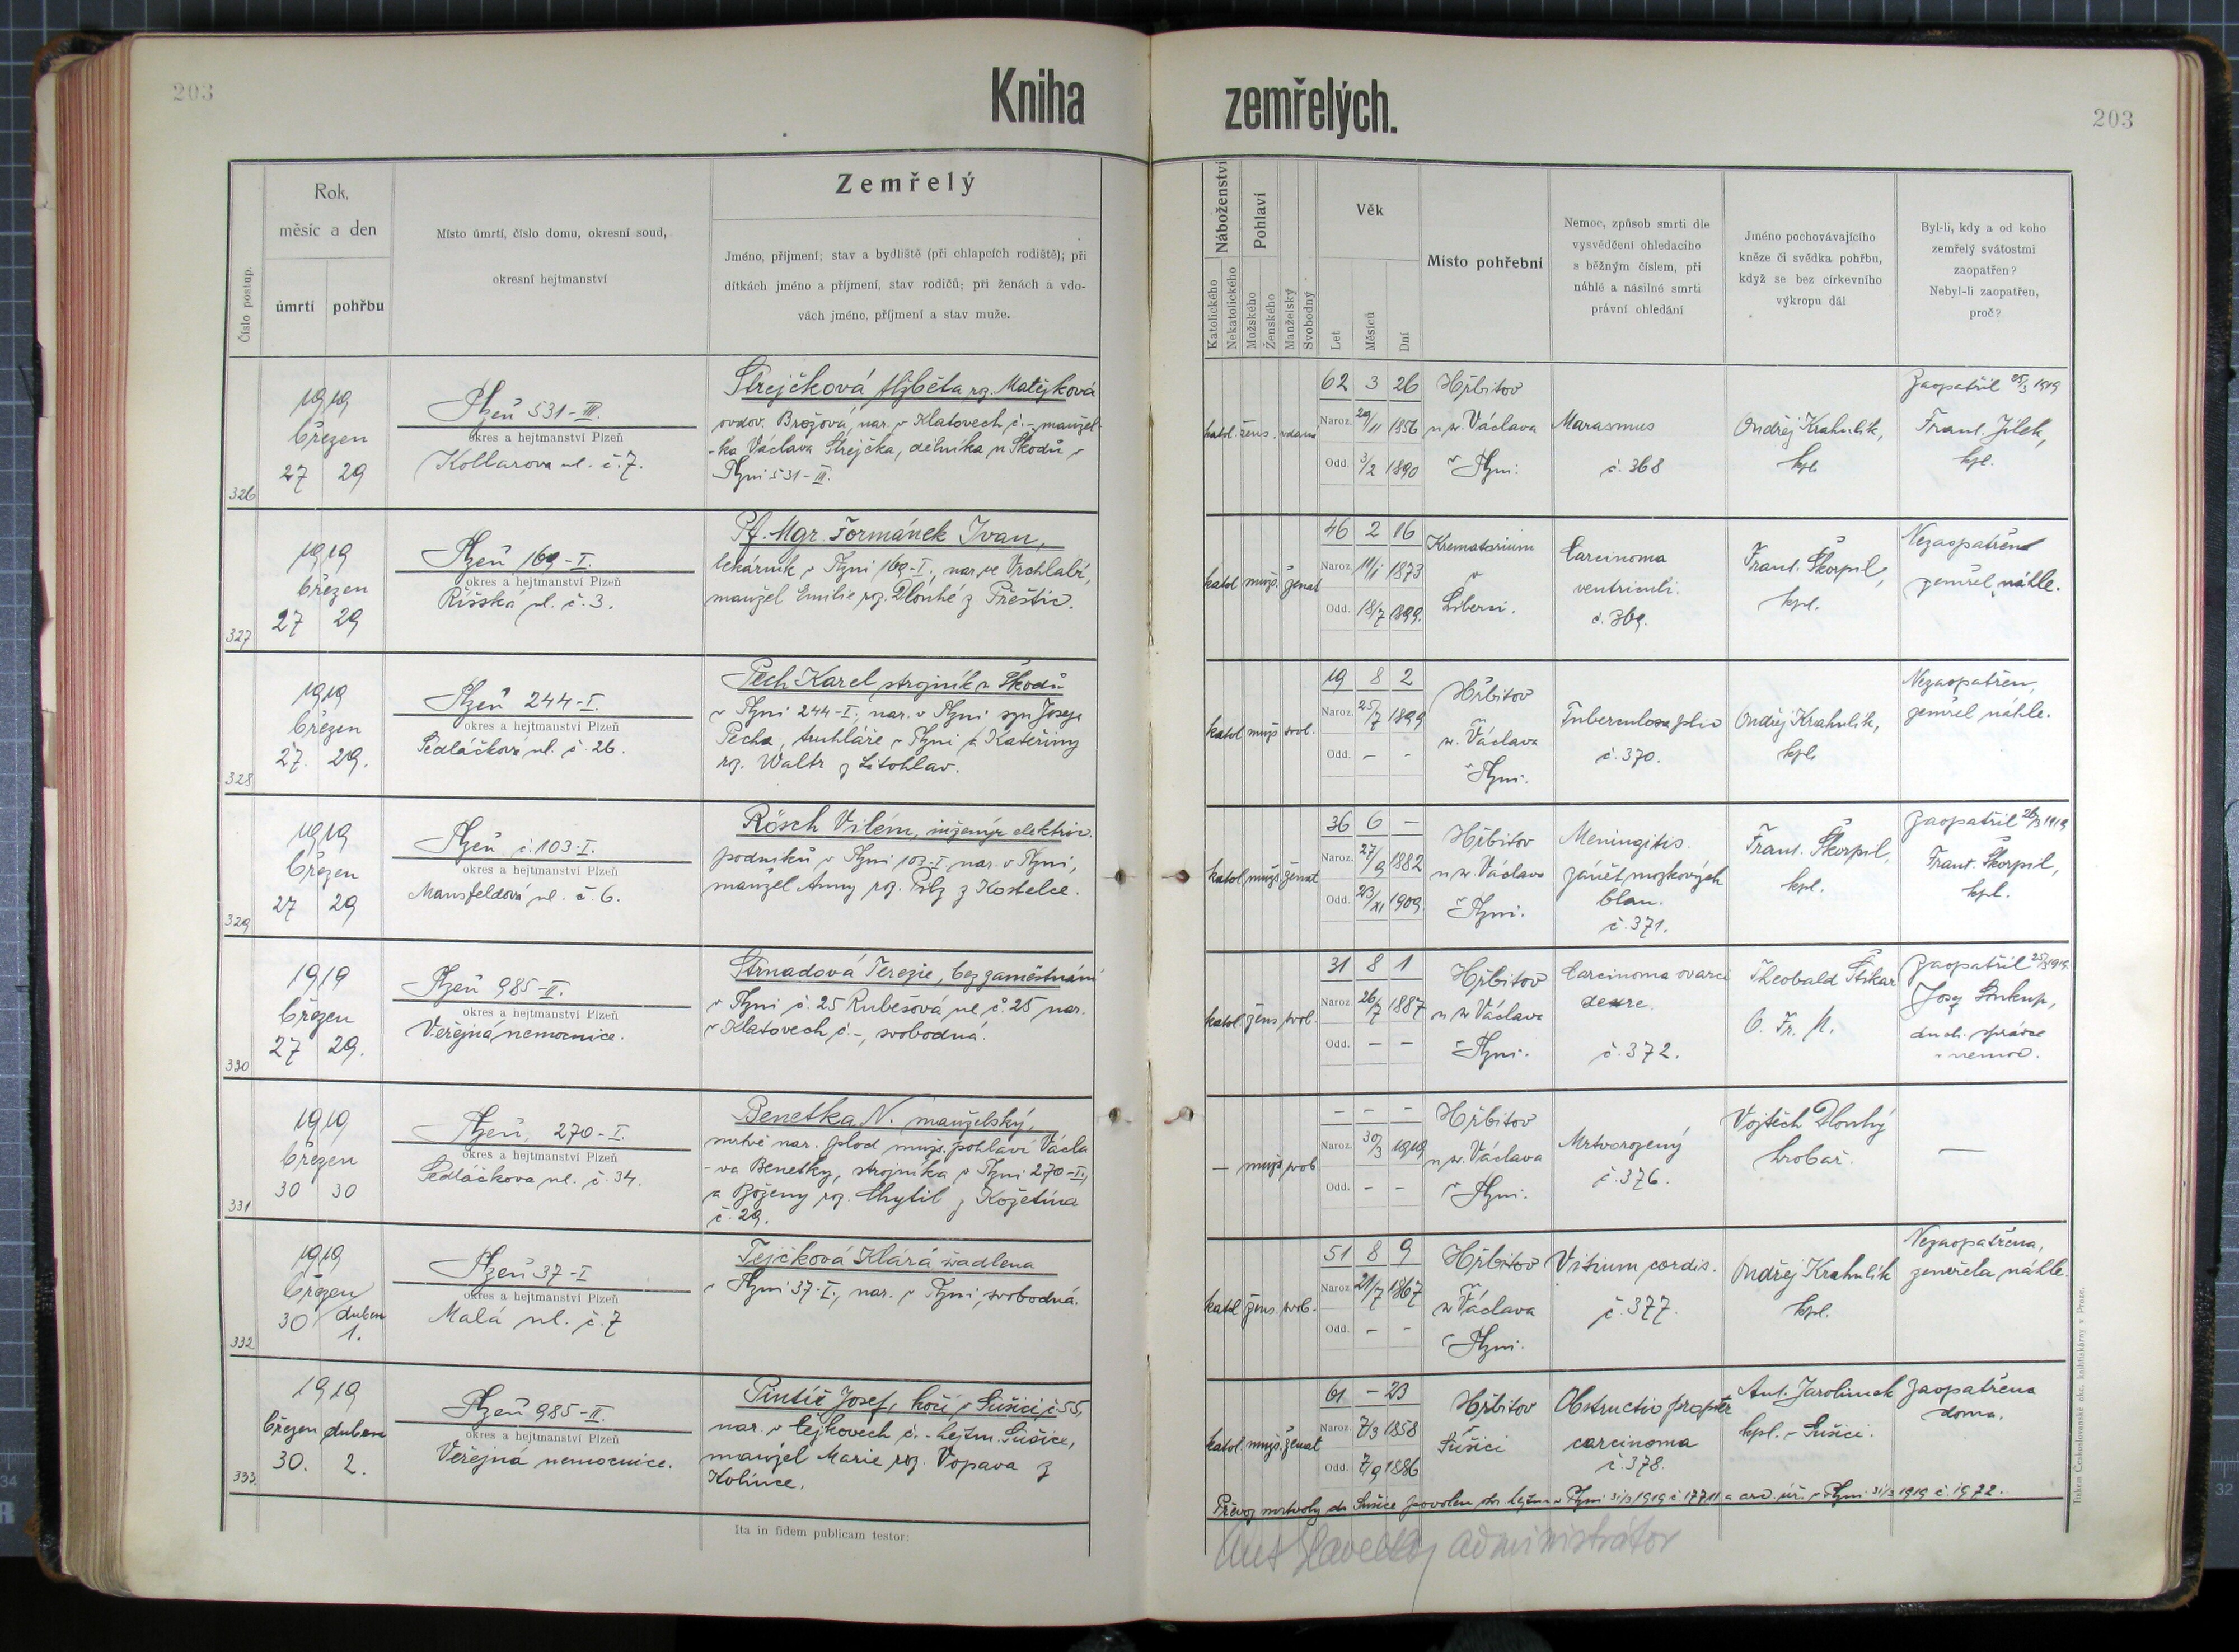 203
Kniha zemřelých.
203
Číslo postup.
Rok,
měsíc a den
úmrtí
pohřbu
Místo úmrtí, číslo domu, okresní soud,
okresní hejtmanství
Zemřelý
Jméno, příjmení; stav a bydliště (při chlapcích rodiště); při
dítkách jméno a příjmení, stav rodičů; při ženách a vdo-
vách jméno, příjmení a stav muže.
Náboženství
Katolického
Nekatolického
Pohlaví
Mužského
Ženského
Manželský
Svobodný
Věk
Let
Měsíců
Dní
Místo pohřební
Nemoc, způsob smrti dle
vysvědčení ohledacího
s běžným číslem, při
náhlé a násilné smrti
právní ohledání
Jméno pochovávajícího
kněze či svědka pohřbu,
když se bez církevního
výkropu dál
Byl-li, kdy a od koho
zemřelý svátostmi
zaopatřen?
Nebyl-li zaopatřen,
proč?
326
1919
březen
27 29
Plzeň 531-III.
okres a hejtmanství Plzeň
Kollarova ul. č. 7.
Strejčková Alžběta roz. Matějková
ovdov. Brožová, nar. v Klatovech č. - manžel-
-ka Václava Strejčka, dělníka u Škodů v
Plzni 531-III.
katol. žens. vdaná
62 3 26
Naroz. 29/11 1856
Odd. 3/2 1890
Hřbitov
u sv. Václava
v Plzni.
Marasmus
č. 368
Ondřej Krahulík,
kpl.
Zaopatřil 25/3 1919
Frant. Jílek,
kpl.
327
1919
březen
27 29
Plzeň 169-I.
okres a hejtmanství Plzeň
Říšská ul. č. 3.
Pf. Mgr. Formánek Ivan,
lékárník v Plzni 169-I., nar. ve Vrchlabí,
manžel Emilie roz. Dlouhé z Přeštic.
katol. muž. ženat
46 2 16
Naroz. 11/1 1873
Odd. 18/7 1899.
Krematorium
v
Liberci.
Carcinoma
ventriculi.
č. 369.
Frant. Škorpil,
kpl.
Nezaopatřen
zemřel náhle.
328
1919
březen
27. 29.
Plzeň 244-I.
okres a hejtmanství Plzeň
Sedláčkova ul. č. 26.
Pech Karel strojník u Škodů
v Plzni 244-I., nar. v Plzni syn Josefa
Pecha, truhláře v Plzni a Kateřiny
roz. Waltr z Litohlav.
katol. muž. svob.
19 8 2
Naroz. 25/7 1899
Odd. - -
Hřbitov
sv. Václava
v Plzni.
Tuberculosa plic
č. 370.
Ondřej Krahulík,
kpl.
Nezaopatřen,
zemřel náhle.
329
1919
březen
27 29
Plzeň č. 103-I.
okres a hejtmanství Plzeň
Mansfeldova ul. č. 6.
Rösch Vilém, inženýr elektric.
podniků v Plzni 103-I, nar. v Plzni,
manžel Anny roz. Pilz z Kostelce.
katol. muž. ženat
36 6 -
Naroz. 27/9 1882
Odd. 23/XI 1909.
Hřbitov
u sv. Václava
v Plzni.
Meningitis.
zánět mozkových
blan.
č. 371.
Frant. Škorpil,
kpl.
Zaopatřil 26/3 1919
Frant. Škorpil,
kpl.
330
1919
březen
27 29.
Plzeň 985-II.
okres a hejtmanství Plzeň
Veřejná nemocnice.
Strnadová Terezie, bez zaměstnání
v Plzni č. 25 Rubešova ul. č. 25 nar.
v Klatovech č. -, svobodná.
katol. žens. svob.
31 8 1
Naroz. 26/7 1887
Odd. - -
Hřbitov
u sv. Václava
v Plzni.
Carcinoma ovarii
č. 372.
Theobald Štikar
O. Fr. M.
Zaopatřil 25/3 1919.
Josef Soukup,
duch. správce
v nemoc.
331
1919
březen
30 30
Plzeň, 270-I.
okres a hejtmanství Plzeň
Sedláčkova ul. č. 34.
Benetka N. manželský,
mrtvě nar. plod muž. pohlaví Václa
-va Benetky, strojníka v Plzni 270-I.,
a Boženy roz. Chytil z Kožetína
č. 29.
- muž. svob.
- - -
Naroz. 30/3 1919
Odd. - -
Hřbitov
u sv. Václava
v Plzni.
Mrtvorozený
č. 376.
Vojtěch Dlouhý
hrobař.
—
332
1919
březen
30 duben
1.
Plzeň 37-I
okres a hejtmanství Plzeň
Malá ul. č. 7
Tejčková Klára, švadlena
v Plzni 37-I., nar. v Plzni, svobodná.
katol. žens. svob.
51 8 9
Naroz. 21/7 1867
Odd. - -
Hřbitov
sv. Václava
v Plzni.
Vitium cordis.
č. 377.
Ondřej Krahulík
kpl.
Nezaopatřena,
zemřela náhle.
333
1919
březen duben
30. 2.
Plzeň 985-II.
okres a hejtmanství Plzeň
Veřejná nemocnice.
Pintíř Josef, kočí v Sušici č. 55,
nar. v Čejkovech č. - hejtm. Sušice,
manžel Marie roz. Vopava z
Kolince.
katol. muž. ženat
61 - 23
Naroz. 7/3 1858
Odd. 7/9 1886
Hřbitov
v
Sušici
Obstructio propter
carcinoma
č. 378.
Ant. Jarolímek
kpl. v Sušici.
Zaopatřena
doma.
Převoz mrtvoly do Sušice povolen okr. hejtm. v Plzni 31/3 1919 č. 17711 a arc. úř. v Plzni 31/3 1919 č. 1922.
Ita in fidem publicam testor:
Ant. Havelka, administrátor
Tiskem Československé akc. knihtiskárny v Praze.